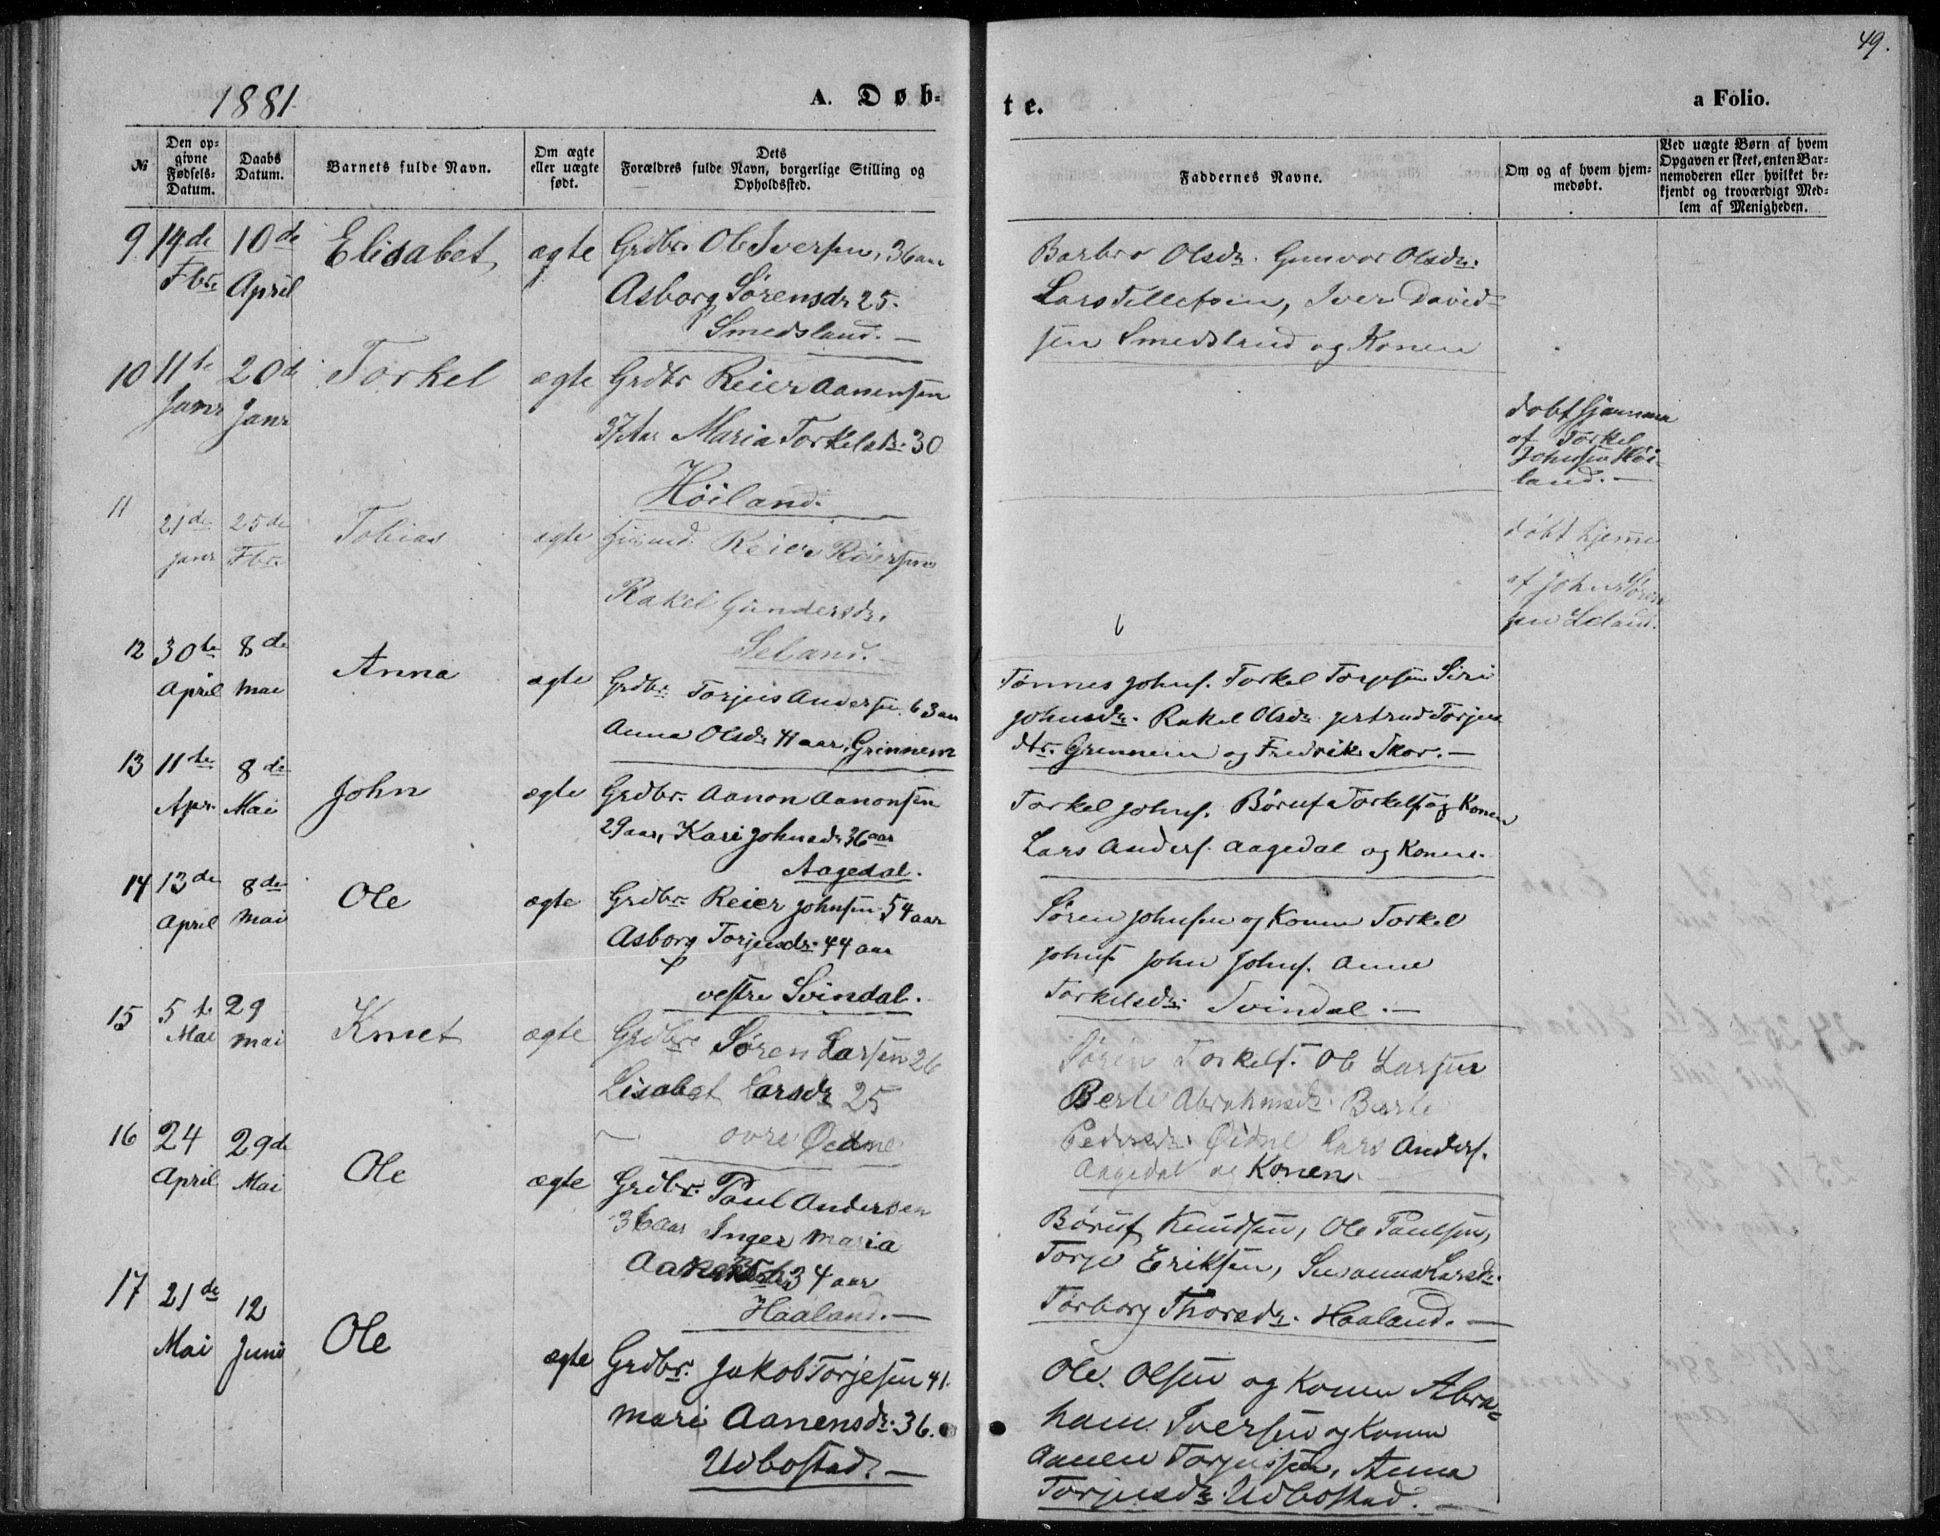 49.
1881
A. Døb-
te.
a Folio.
№
Den op-
givne
Fødsels-
Datum.
Daabs
Datum.
Barnets fulde Navn.
Om ægte
eller uægte
født.
Dets
Forældres fulde Navn, borgerlige Stilling og
Opholdssted.
Faddernes Navne.
Om og af hvem hjem-
medøbt.
Ved uægte Børn af hvem
Opgaven er skeet, enten Bar-
nemoderen eller hvilket be-
kjendt og troværdigt Med-
lem af Menigheden.
9 14de 10de Elisabet ægte Grdbr. Ole Iversen, 36 aar
Fbr. April Asborg Sørensdr 25.
Smedsland. —
Barbro Olsdr. Gunvor Olsdr.
Lars Tellefsen, Iver David-
sen Smedsland og Konen
10 11te 20de Torkel ægte Grdbr Reier Aanensen
Janr Janr 37 Aar Maria Torkelsdr. 30
Höiland.
døbt hjemme
af Torkel
Johnsen Höi-
land. —
11 21de 25de Tobias ægte Reier Reiersen
janr Fbr. Rakel Gundersdr.
Seland. —
døbt hjemme
af John Søren
sen Seland.
12 30te 8de Anna ægte Grdbr. Torjuis Andersen. 63 aar
April Mai Anna Olsdr 41 aar, Grinnem
Tønnes Johns. Torkel Torjesen Siri
Johnsdr. Rakel Olsdr. jertrud Torjus
dtr. Grennem og Fredrik Skor. —
13 11te 8de John ægte Grdbr. Aanon Aanonsen
Apr. Mai 29 aar, Kari Johnsdr 36 aar
Aagedal.
Torkel Johns. Børuf Torkels. og Konen
Lars Anders. Aagedal og Konen.
14 13de 8de Ole ægte Grdbr. Reier Johnsen 54 aar
April Mai Asborg Torjusdr. 44 aar
vestre Svindal.
Søren Johnsen og Konen Torkel
Johns. John Johns. Anne
Torkelsdr. Svindal. —
15 5te 29 Knut ægte Grdbr. Søren Larsen 26
Mai Mai Lisabet Larsdr 25
ovre Øidne
Søren Torkels. Ole Larsen
Berte Abrahmsdr. Berte
Pedersdr. Øidne Lars Anders.
Aagedal og Konen.
16 24 29de Ole ægte Grdbr. Paul Andersen
April Mai 36 aar Inger Maria
34 aar
Haaland. —
Børuf Knudsen, Ole Paulsen,
Torje Eriksen, Susanna Larsdr.
Torborg Thorsdr. Haaland. —
17 21de 12 Ole ægte Grdbr. Jakob Torjesen 41.
Mai Juni Mari Aanensdr. 36.
Udbostad. —
Ole Olsen og Konen Abra-
ham Iversen og Konen
Aanen Torjussen, Anna
Torjusdr. Udbostad. —